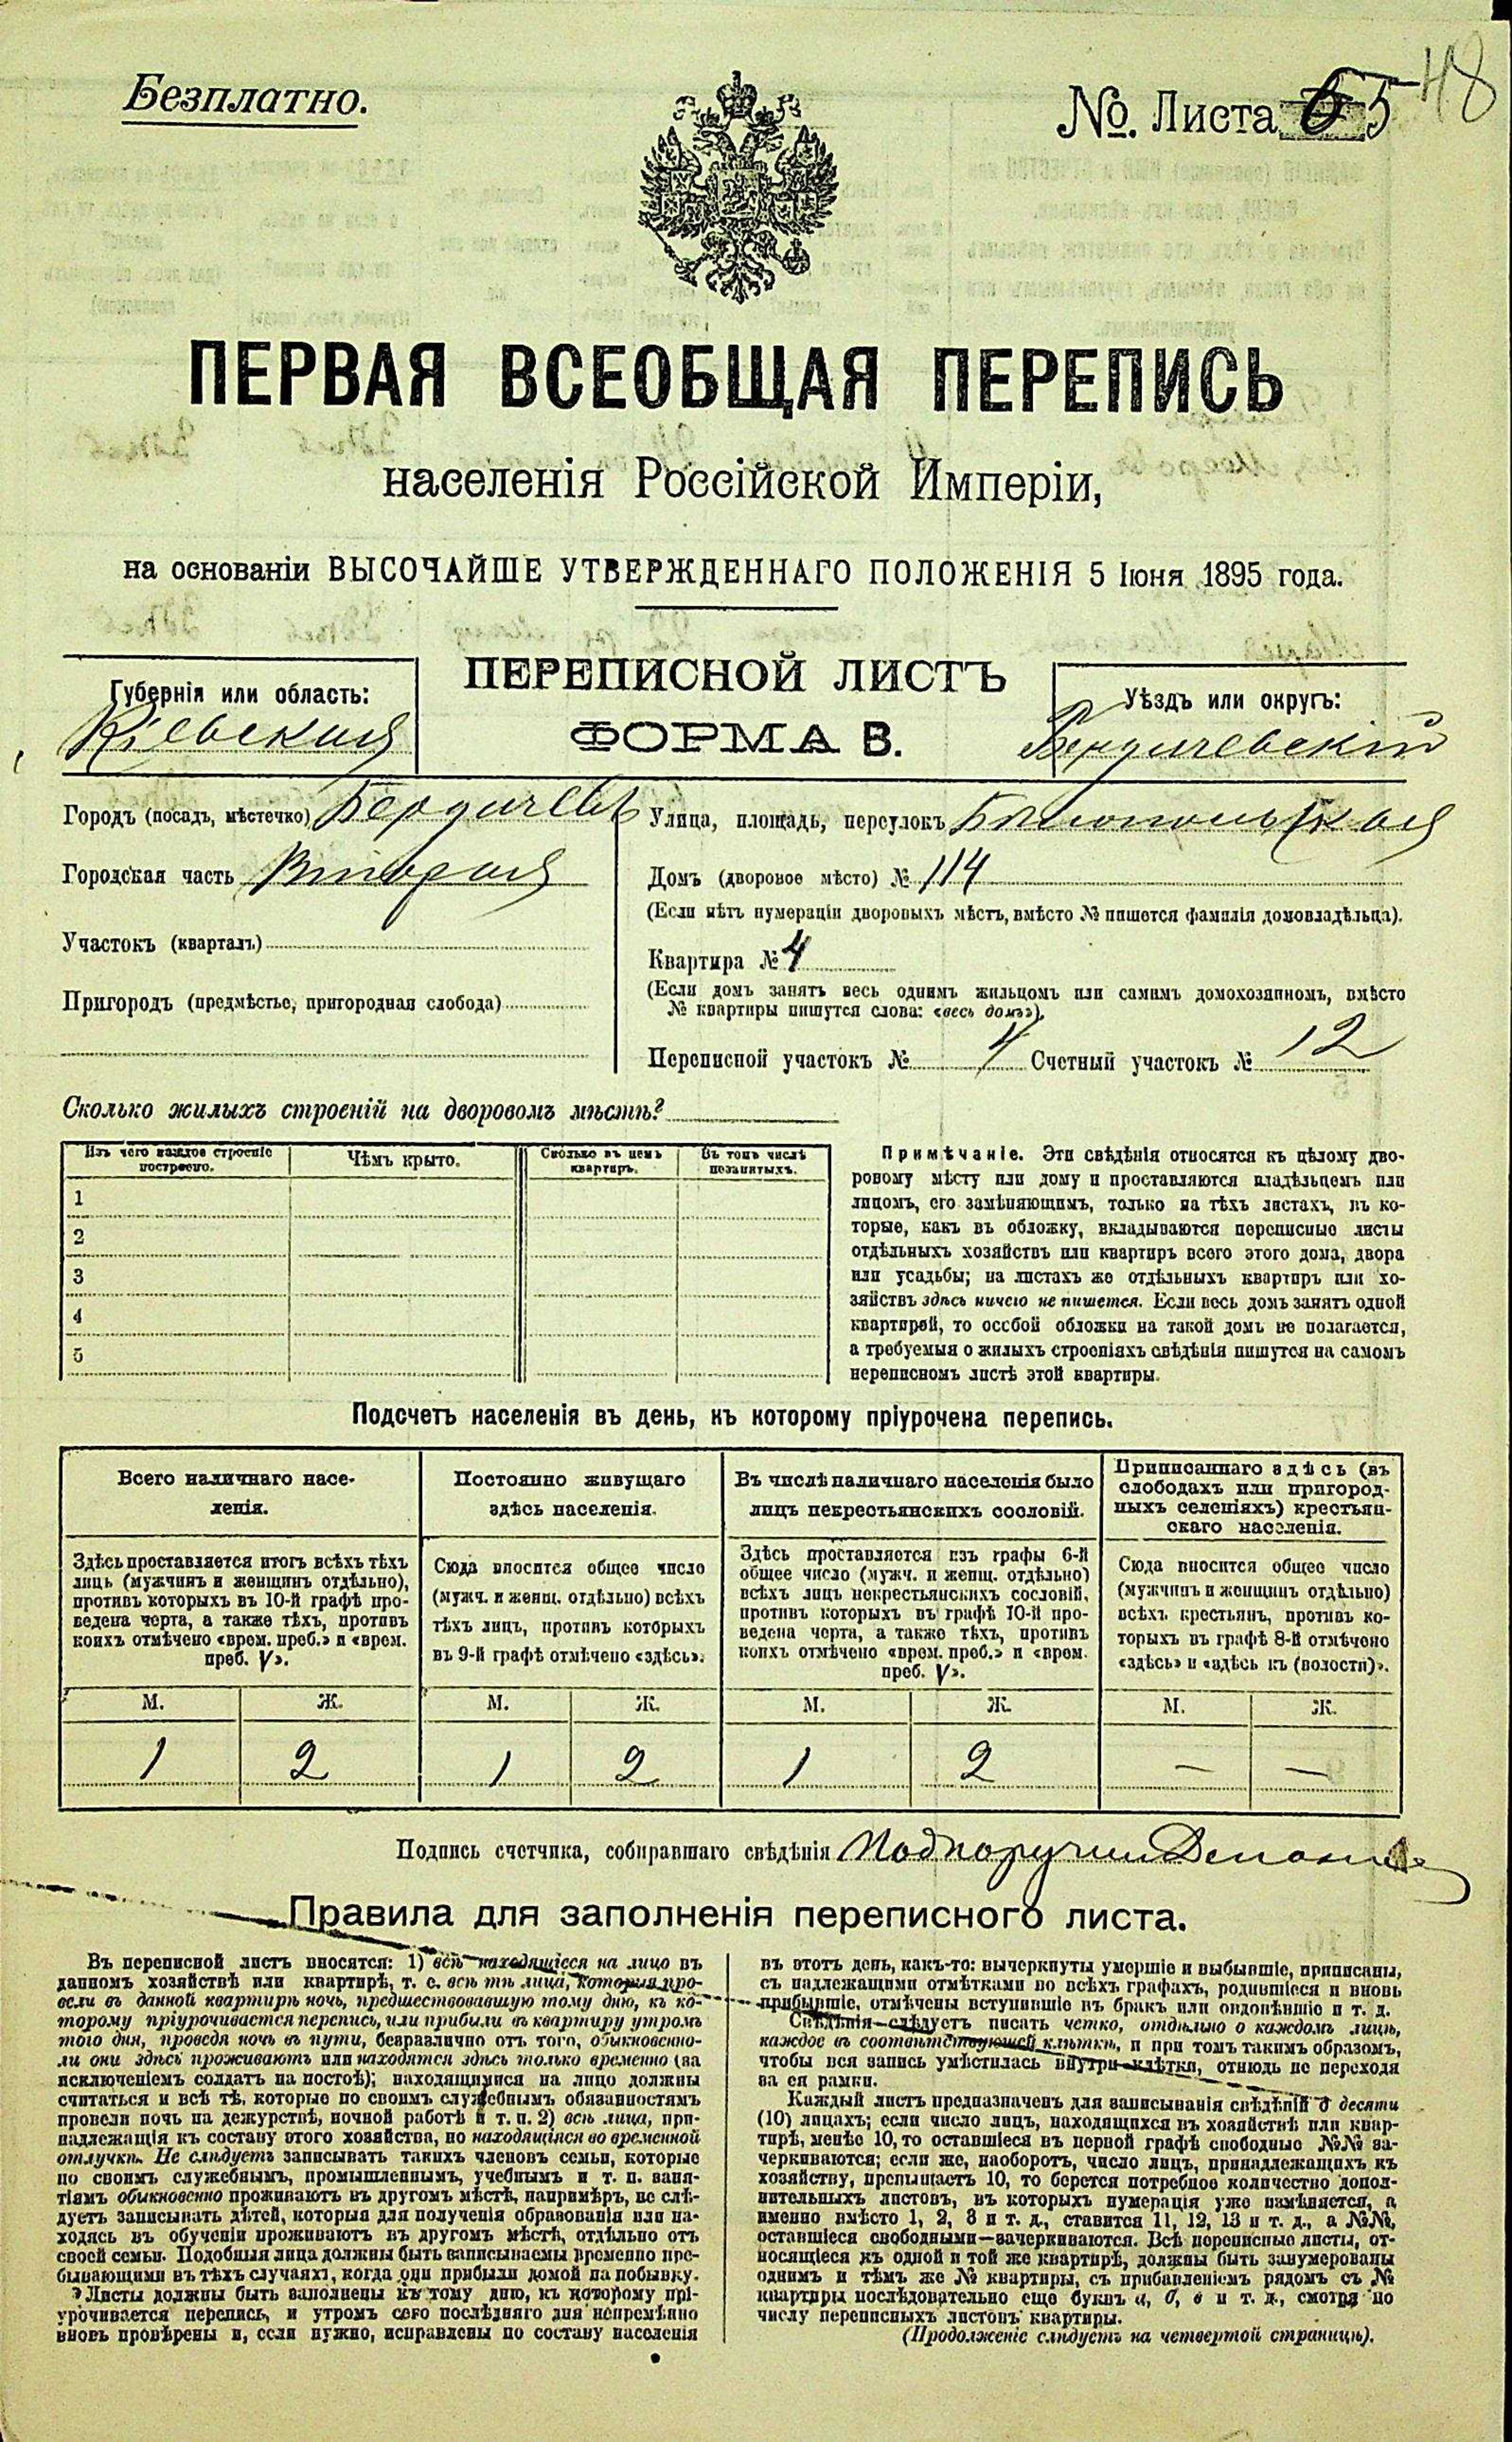 Безплатно.
№. Листа 65 48
ПЕРВАЯ ВСЕОБЩАЯ ПЕРЕПИСЬ
населенія Россійской Имперіи,
на основаніи ВЫСОЧАЙШЕ УТВЕРЖДЕННАГО ПОЛОЖЕНІЯ 5 Іюня 1895 года.
ПЕРЕПИСНОЙ ЛИСТЪ
ФОРМА В.
Губернія или область:
Кіевская
Уѣздъ или округъ:
Бердичевскій
Городъ (посадъ, мѣстечко) Бердичевъ
Городская часть Вторая
Участокъ (кварталъ)
Пригородъ (предмѣстье, пригородная слобода)
Улица, площадь, переулокъ Бѣлопольская
Домъ (дворовое мѣсто) № 114
(Если нѣтъ нумераціи дворовыхъ мѣстъ, вмѣсто № пишется фамилія домовладѣльца).
Квартира № 4
(Если домъ занятъ весь однимъ жильцомъ или самимъ домохозяиномъ, вмѣсто
№ квартиры пишутся слова: «весь домъ»).
Переписной участокъ № 4 Счетный участокъ № 12
Сколько жилыхъ строеній на дворовомъ мѣстѣ?
Изъ чего каждое строеніе
построено.
Чѣмъ крыто.
Сколько въ немъ
квартиръ.
Въ томъ числѣ
незанятыхъ.
1
2
3
4
5
Примѣчаніе. Эти свѣдѣнія относятся къ цѣлому дво-
ровому мѣсту или дому и проставляются владѣльцемъ или
лицомъ, его замѣняющимъ, только на тѣхъ листахъ, въ ко-
торые, какъ въ обложку, вкладываются переписные листы
отдѣльныхъ хозяйствъ или квартиръ всего этого дома, двора
или усадьбы; на листахъ же отдѣльныхъ квартиръ или хо-
зяйствъ здѣсь ничего не пишется. Если весь домъ занятъ одной
квартирой, то особой обложки на такой домъ не полагается,
а требуемыя о жилыхъ строеніяхъ свѣдѣнія пишутся на самомъ
переписномъ листѣ этой квартиры.
Подсчетъ населенія въ день, къ которому пріурочена перепись.
Всего наличнаго насе-
ленія.
Постоянно живущаго
здѣсь населенія.
Въ числѣ наличнаго населенія было
лицъ некрестьянскихъ сословій.
Приписаннаго здѣсь (въ
слободахъ или пригород-
ныхъ селеніяхъ) крестьян-
скаго населенія.
Здѣсь проставляется итогъ всѣхъ тѣхъ
лицъ (мужчинъ и женщинъ отдѣльно),
противъ которыхъ въ 10-й графѣ про-
ведена черта, а также тѣхъ, противъ
коихъ отмѣчено «врем. преб.» и «врем.
преб. V».
Сюда вносится общее число
(мужч. и женщ. отдѣльно) всѣхъ
тѣхъ лицъ, противъ которыхъ
въ 9-й графѣ отмѣчено «здѣсь».
Здѣсь проставляется изъ графы 6-й
общее число (мужч. и женщ. отдѣльно)
всѣхъ лицъ некрестьянскихъ сословій,
противъ которыхъ въ графѣ 10-й про-
ведена черта, а также тѣхъ, противъ
коихъ отмѣчено «врем. преб.» и «врем.
преб. V».
Сюда вносится общее число
(мужчинъ и женщинъ отдѣльно)
всѣхъ крестьянъ, противъ ко-
торыхъ въ графѣ 8-й отмѣчено
«здѣсь» и «здѣсь къ (волости)».
М. Ж. М. Ж. М. Ж. М. Ж.
1 2 1 2 1 2 — —
Подпись счетчика, собиравшаго свѣдѣнія Подпоручикъ
Правила для заполненія переписного листа.
Въ переписной листъ вносятся: 1) всѣ находящіеся на лицо въ
данномъ хозяйствѣ или квартирѣ, т. е. всѣ тѣ лица, которыя про-
вели въ данной квартирѣ ночь, предшествовавшую тому дню, къ ко-
торому пріурочивается перепись, или прибыли въ квартиру утромъ
того дня, проведя ночь въ пути, безразлично отъ того, обыкновенно-
ли они здѣсь проживаютъ или находятся здѣсь только временно (за
исключеніемъ солдатъ на постоѣ); находящимися на лицо должны
считаться и всѣ тѣ, которые по своимъ служебнымъ обязанностямъ
провели ночь на дежурствѣ, ночной работѣ и т. п. 2) всѣ лица, при-
надлежащія къ составу этого хозяйства, но находящіяся во временной
отлучкѣ. Не слѣдуетъ записывать такихъ членовъ семьи, которые
по своимъ служебнымъ, промышленнымъ, учебнымъ и т. п. заня-
тіямъ обыкновенно проживаютъ въ другомъ мѣстѣ, напримѣръ, не слѣ-
дуетъ записывать дѣтей, которыя для полученія образованія или на-
ходясь въ обученіи проживаютъ въ другомъ мѣстѣ, отдѣльно отъ
своей семьи. Подобныя лица должны быть записываемы временно пре-
бывающими въ тѣхъ случаяхъ, когда они прибыли домой на побывку.
Листы должны быть заполнены къ тому дню, къ которому прі-
урочивается перепись, и утромъ сего послѣдняго дня непремѣнно
вновь провѣрены и, если нужно, исправлены по составу населенія
въ этотъ день, какъ-то: вычеркнуты умершіе и выбывшіе, приписаны,
съ надлежащими отмѣтками во всѣхъ графахъ, родившіеся и вновь
прибывшіе, отмѣчены вступившіе въ бракъ или овдовѣвшіе и т. д.
Свѣдѣнія слѣдуетъ писать четко, отдѣльно о каждомъ лицѣ,
каждое въ соотвѣтствующей клѣткѣ, и при томъ такимъ образомъ,
чтобы вся запись умѣстилась внутри клѣтки, отнюдь не переходя
за ея рамки.
Каждый листъ предназначенъ для записыванія свѣдѣній о десяти
(10) лицахъ; если число лицъ, находящихся въ хозяйствѣ или квар-
тирѣ, менѣе 10, то оставшіеся въ первой графѣ свободные №№ за-
черкиваются; если же, наоборотъ, число лицъ, принадлежащихъ къ
хозяйству, превышаетъ 10, то берется потребное количество допол-
нительныхъ листовъ, въ которыхъ нумерація уже измѣняется, а
именно вмѣсто 1, 2, 3 и т. д., ставится 11, 12, 13 и т. д., а №№,
оставшіеся свободными—зачеркиваются. Всѣ переписные листы, от-
носящіеся къ одной и той же квартирѣ, должны быть занумерованы
однимъ и тѣмъ же № квартиры, съ прибавленіемъ рядомъ съ №
квартиры послѣдовательно еще буквъ а, б, в и т. д., смотря по
числу переписныхъ листовъ квартиры.
(Продолженіе слѣдуетъ на четвертой страницѣ).